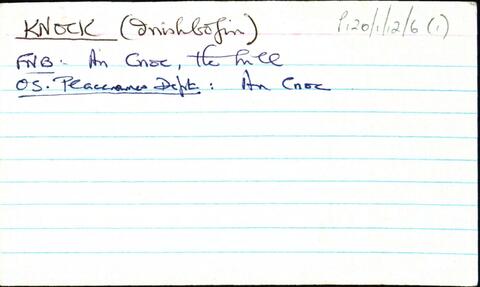 KNOCK (Inishbofin) P120/1/12/6 (1)
FNB: An Cnoc, the hill
OS. Placenames Dept: An Cnoc